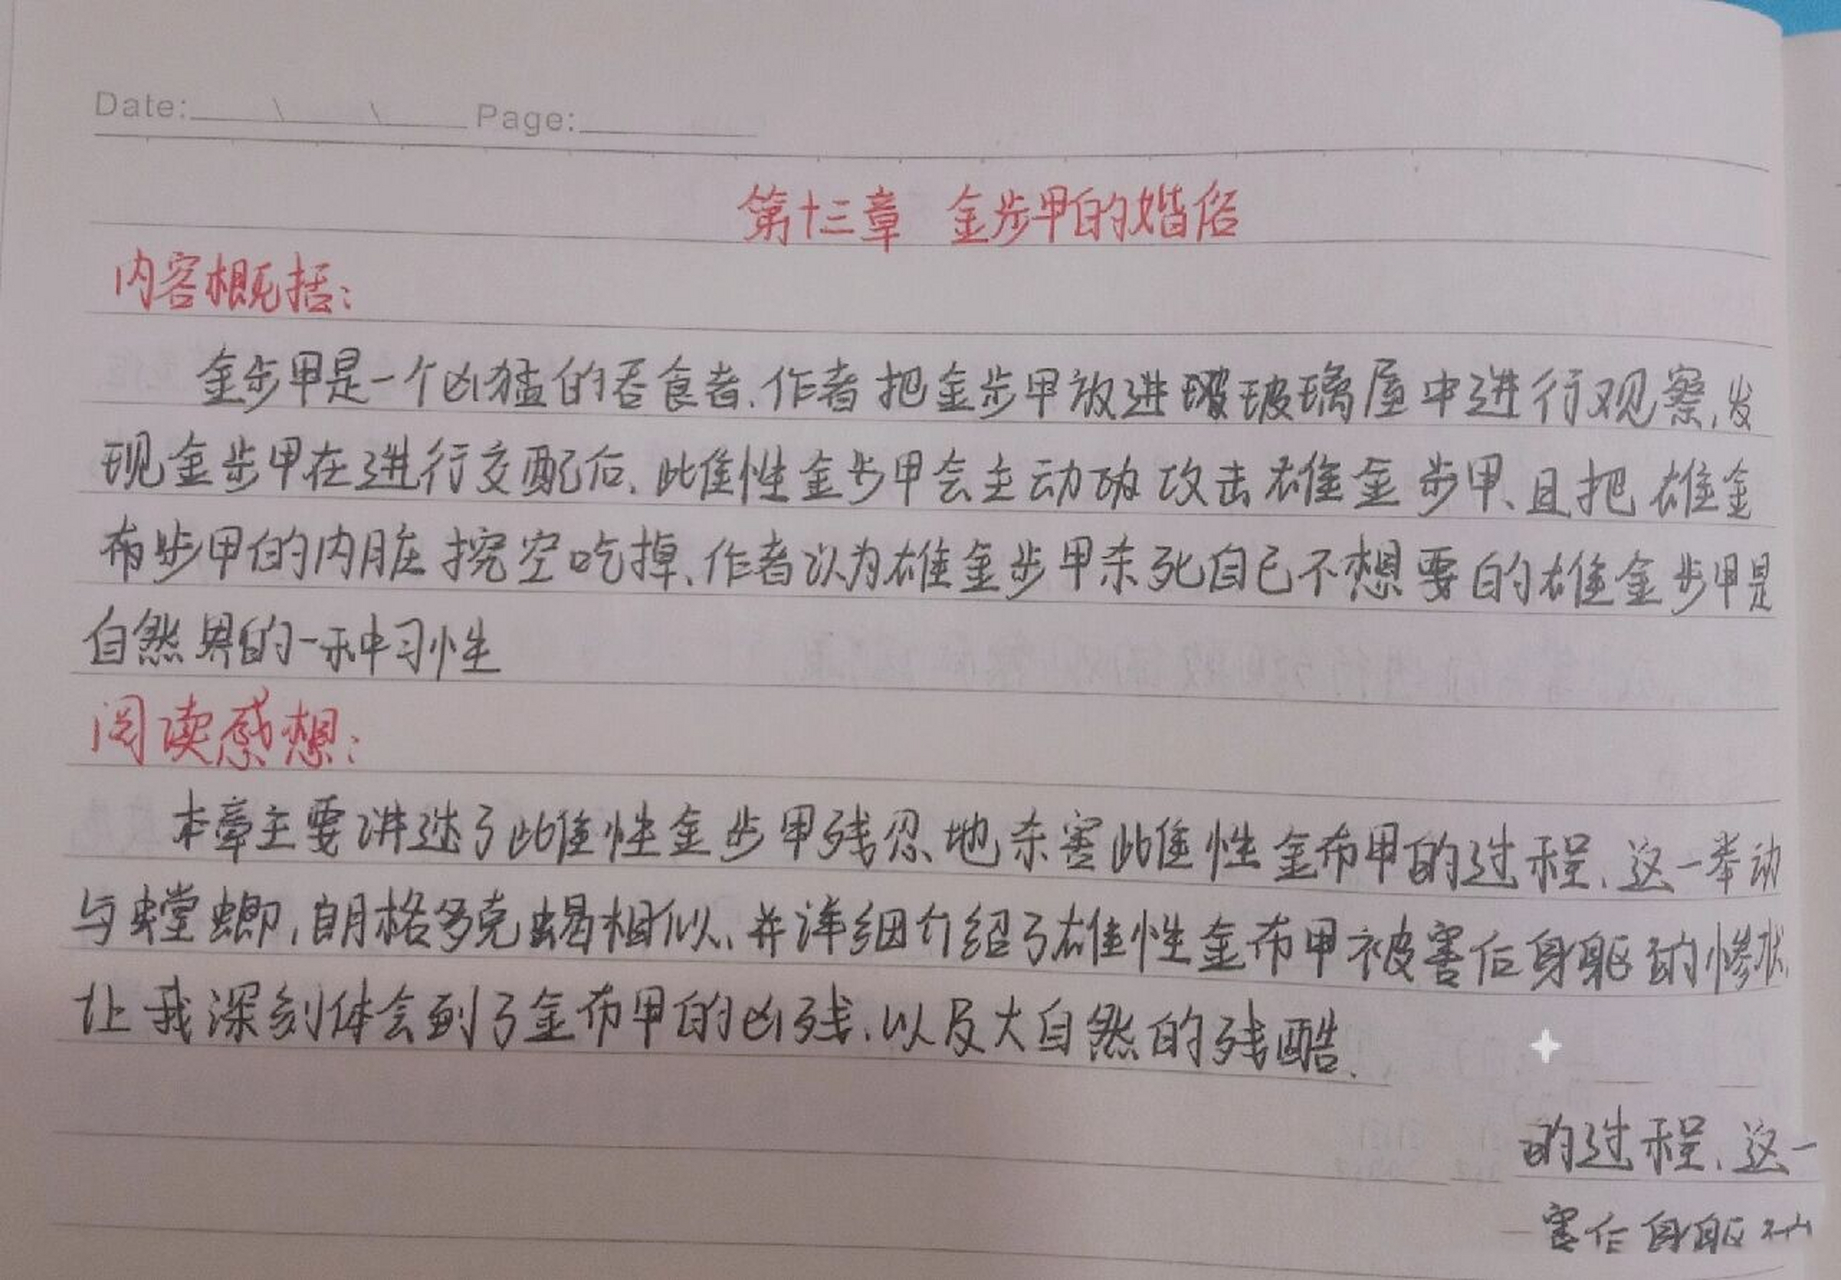 Date: \ \ Page:
第十三章 金步甲的婚俗
内容概括:
金步甲是一个凶猛的吞食者.作者把金步甲放进玻璃屋中进行观察,发
现金步甲在进行交配后.雌性金步甲会主动攻击雄金步甲、且把雄金
布步甲的内脏挖空吃掉、作者以为雄金步甲杀死自己不想要的雄金步甲是
自然界的一种习性
阅读感想:
本章主要讲述了雌性金步甲残忍地杀害雌性金布甲的过程、这一举动
与螳螂,朗格多克蝎相似、并详细介绍了雄性金布甲被害后身躯的惨状
让我深刻体会到了金布甲的凶残.以及大自然的残酷.
的过程、这一
害后身躯